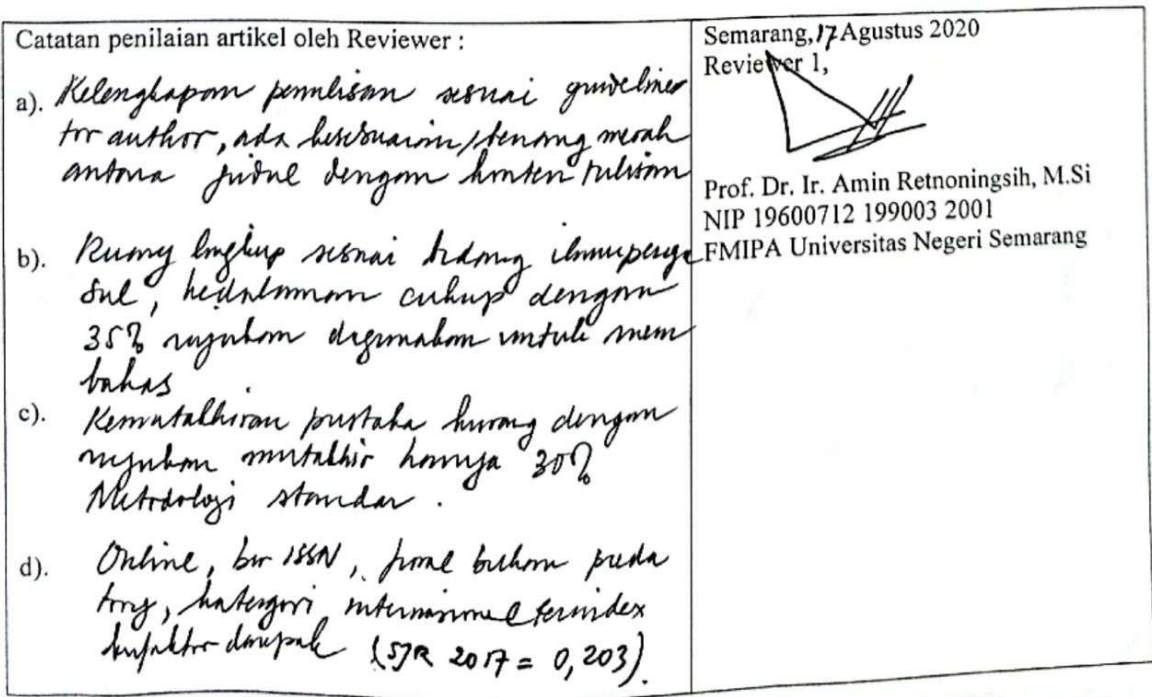 Catatan penilaian artikel oleh Reviewer :
a). Kelengkapan penulisan sesuai guidelines
for author, ada kesesuaian/benang merah
antara judul dengan konten tulisan
b). Ruang lingkup sesuai bidang ilmu pengu
sul, kedalaman cukup dengan
35% rujukan digunakan untuk mem
bahas
c). Kemutakhiran pustaka kurang dengan
rujukan mutakhir hanya 30%
Metodologi standar.
d). Online, ber ISSN, jurnal bukan preda
tory, kategori internasional terindex
berfaktor dampak (SJR 2017 = 0,203).
Semarang, 17 Agustus 2020
Reviewer 1,
Prof. Dr. Ir. Amin Retnoningsih, M.Si
NIP 19600712 199003 2001
FMIPA Universitas Negeri Semarang